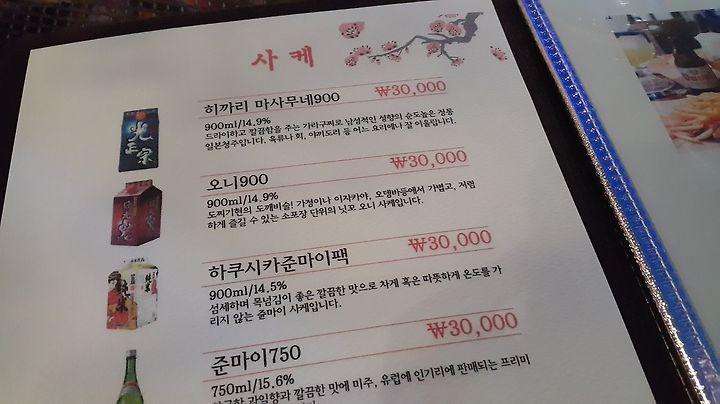 사케
히까리 마사무네900 ₩30,000
900ml/14.9%
드라이하고 깔끔함을 주는 가라구찌로 남성적인 성향의 순도높은 정통
일본청주입니다. 육류나 회, 야끼도리 등 어느 요리에나 잘 어울립니다.
오니900 ₩30,000
900ml/14.9%
도찌기현의 도깨비술! 가정이나 이자카야, 오뎅바등에서 가볍고, 저렴
하게 즐길 수 있는 소포장 단위의 닛꼬 오니 사케입니다.
하쿠시카준마이팩 ₩30,000
900ml/14.5%
섬세하며 목넘김이 좋은 깔끔한 맛으로 차게 혹은 따뜻하게 온도를 가
리지 않는 준마이 사케입니다.
준마이750 ₩30,000
750ml/15.6%
과일향과 깔끔한 맛에 미주, 유럽에 인기리에 판매되는 프리미
光
正宗